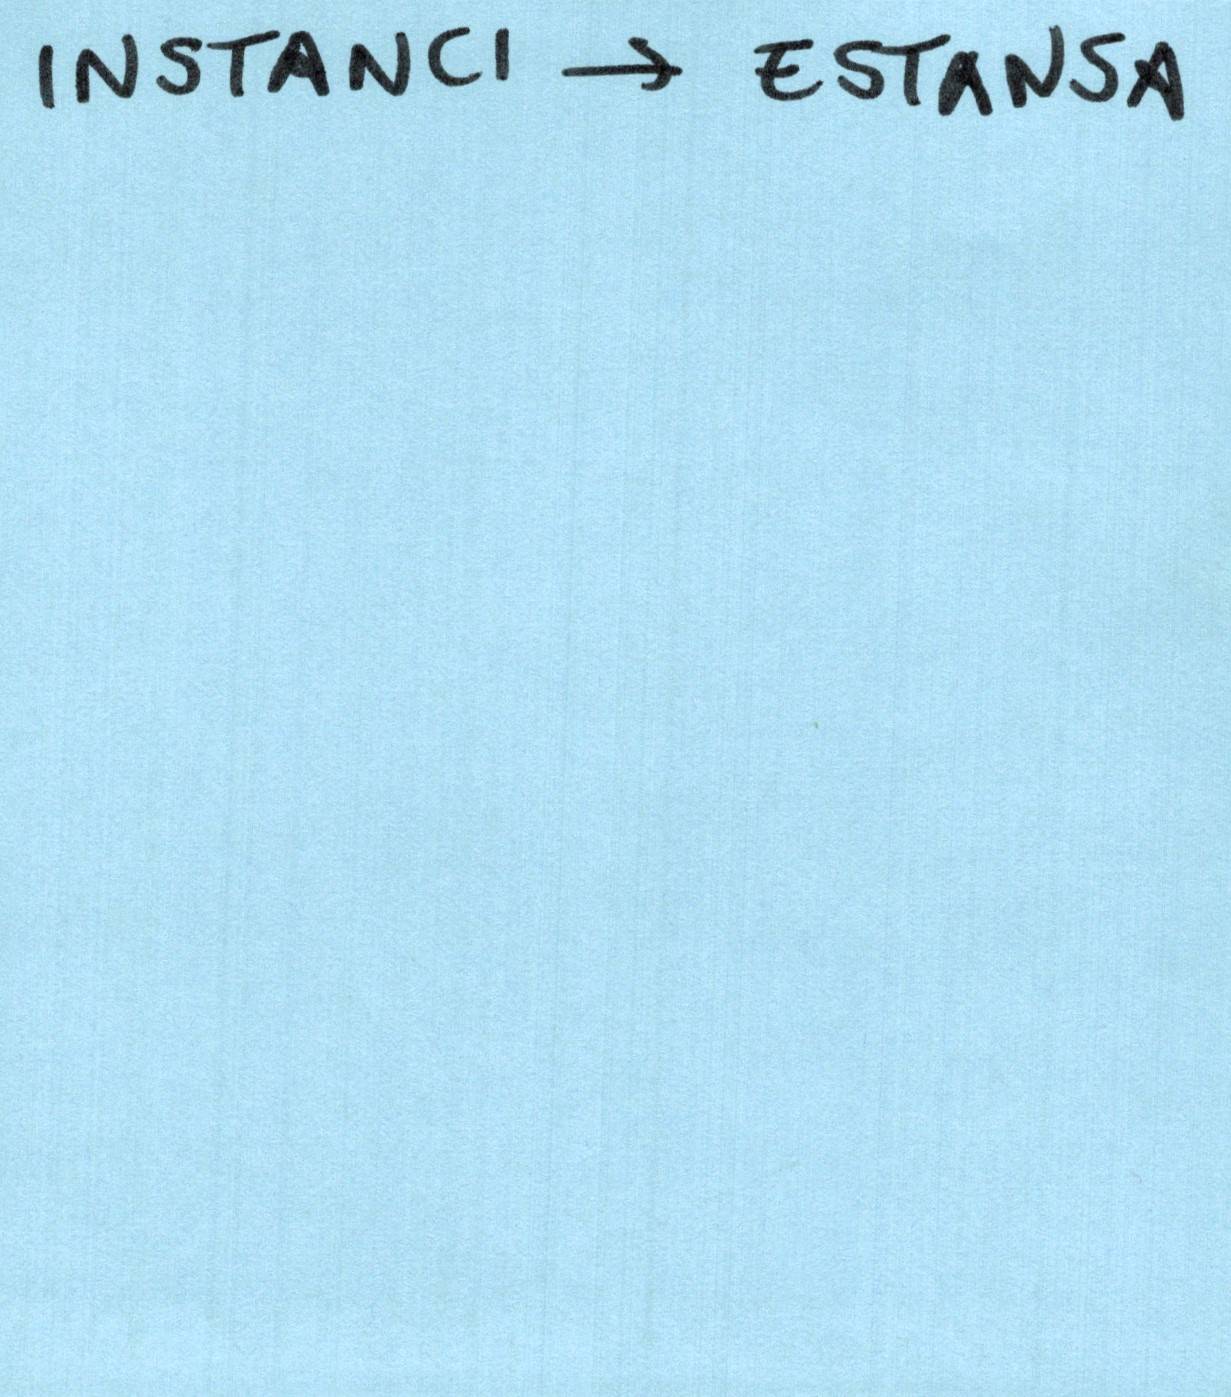 INSTANCI → ESTANSA